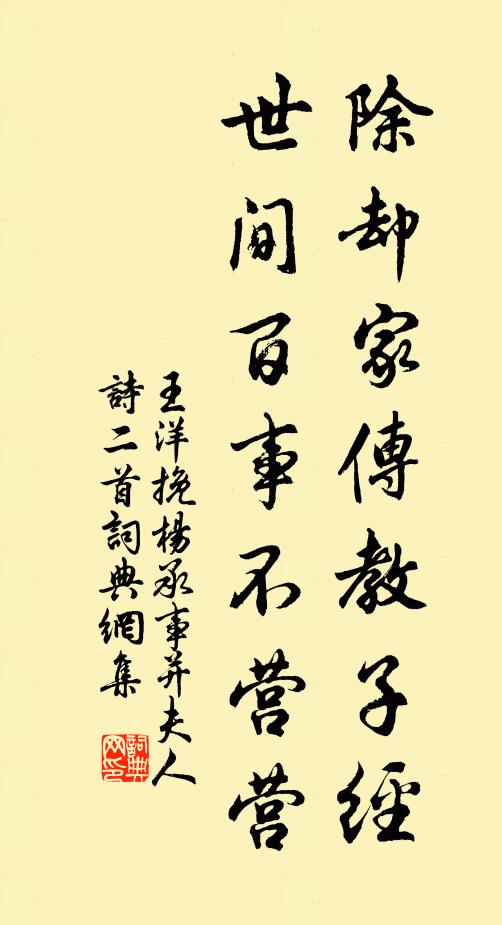 除却家傳教子經
世间百事不营营
王洋挽楊承事并夫人
詩二首詞典網集
詞典
网印